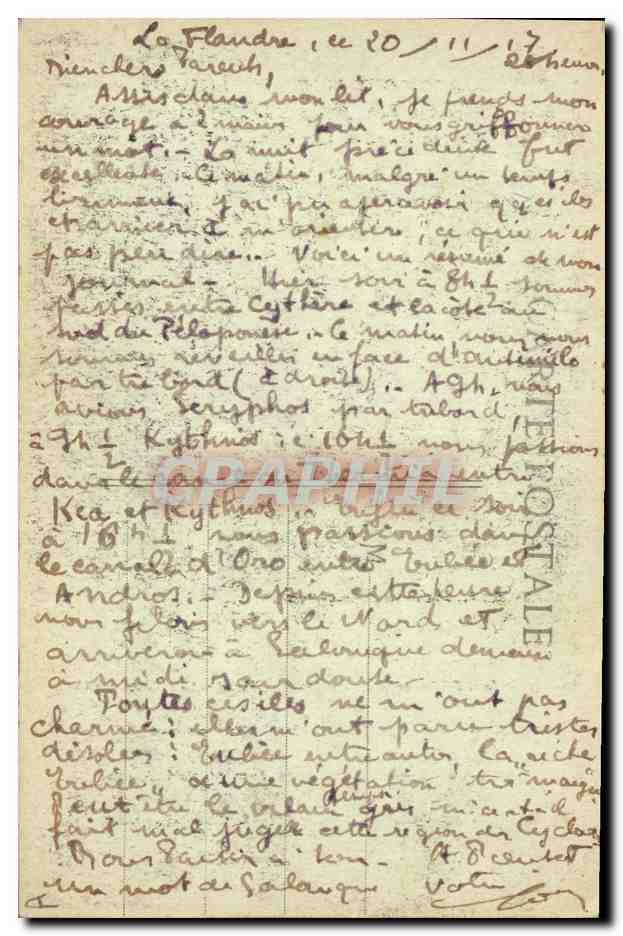 La Flandre, ce 20/11/17
Bien chers Parents,
Assis dans mon lit, je prends mon
courage à 2 mains pour vous griffonner
un mot. - La nuit précédente fut
excellente. Ce matin, malgré un temps
j'ai pu apercevoir qques îles
et arriver à m'orienter, ce qui n'est
pas peu dire. - Voici un résumé de mon
journal - Hier soir à 8h½ sommes
passés entre Cythère et la côte au
sud du Péloponèse. - Ce matin, nous nous
sommes réveillés en face d'Antimilo
par tribord (à droite). - A 9h, nous
avions Seryphos par tribord,
à 9h ½ Kythnos; à 10h½ nous passions
dans le entre
Kea et Kythnos. - ce soir
à 16h½ nous passions dans
le canal d'Oro entre Eubée et
Andros. - Depuis cette heure
nous filons vers le Nord et
arriverons à Salonique demain
à midi sans doute -
Toutes ces îles ne m'ont pas
charmé: elles m'ont paru tristes
désolées: Eubée entre autres, la "riche
Eubée" a une végétation très maigre
Peut être le vilain temps gris m'a-t-il
fait mal juger cette région des Cyclades
Bons baisers à tous - A bientôt
un mot de Salonique Votre
CARTE POSTALE
CPAPHIL
M